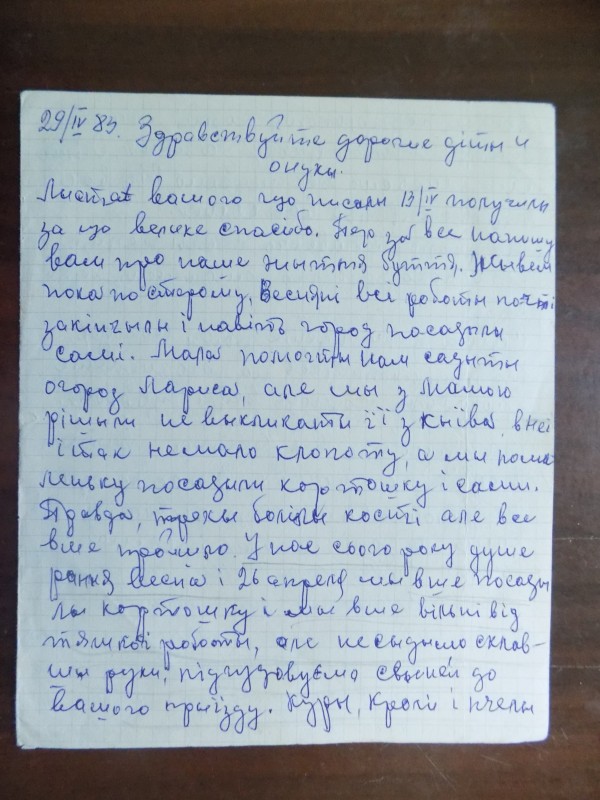 29/IV 83. Здравствуйте дорогие діти и
онуки.
Листа вашого що писали 13/IV получили
за що велике спасибо. за все напишу
вам про наше життя буття. Живем
пока по старому, Весняні всі роботы почті
закінчылы і навіть город посадылы
самі. Мала помогты нам садыты
огород Лариса, але мы з мамою
рішылы не выкликаты її з Київа, в неї
і так немало клопоту, а ми пома
леньку посадили картошку і самы.
Правда, трохы болілы кості але все
вже пройшло. У нас сього року дуже
рання весна і 26 апреля мы вже посады
лы картошку і мы вже вільні від
тяжкої роботы, але не сыдымо склав-
шы руки, підгудовуємо свыней до
вашого приїзду. Куры, кролі і пчелы